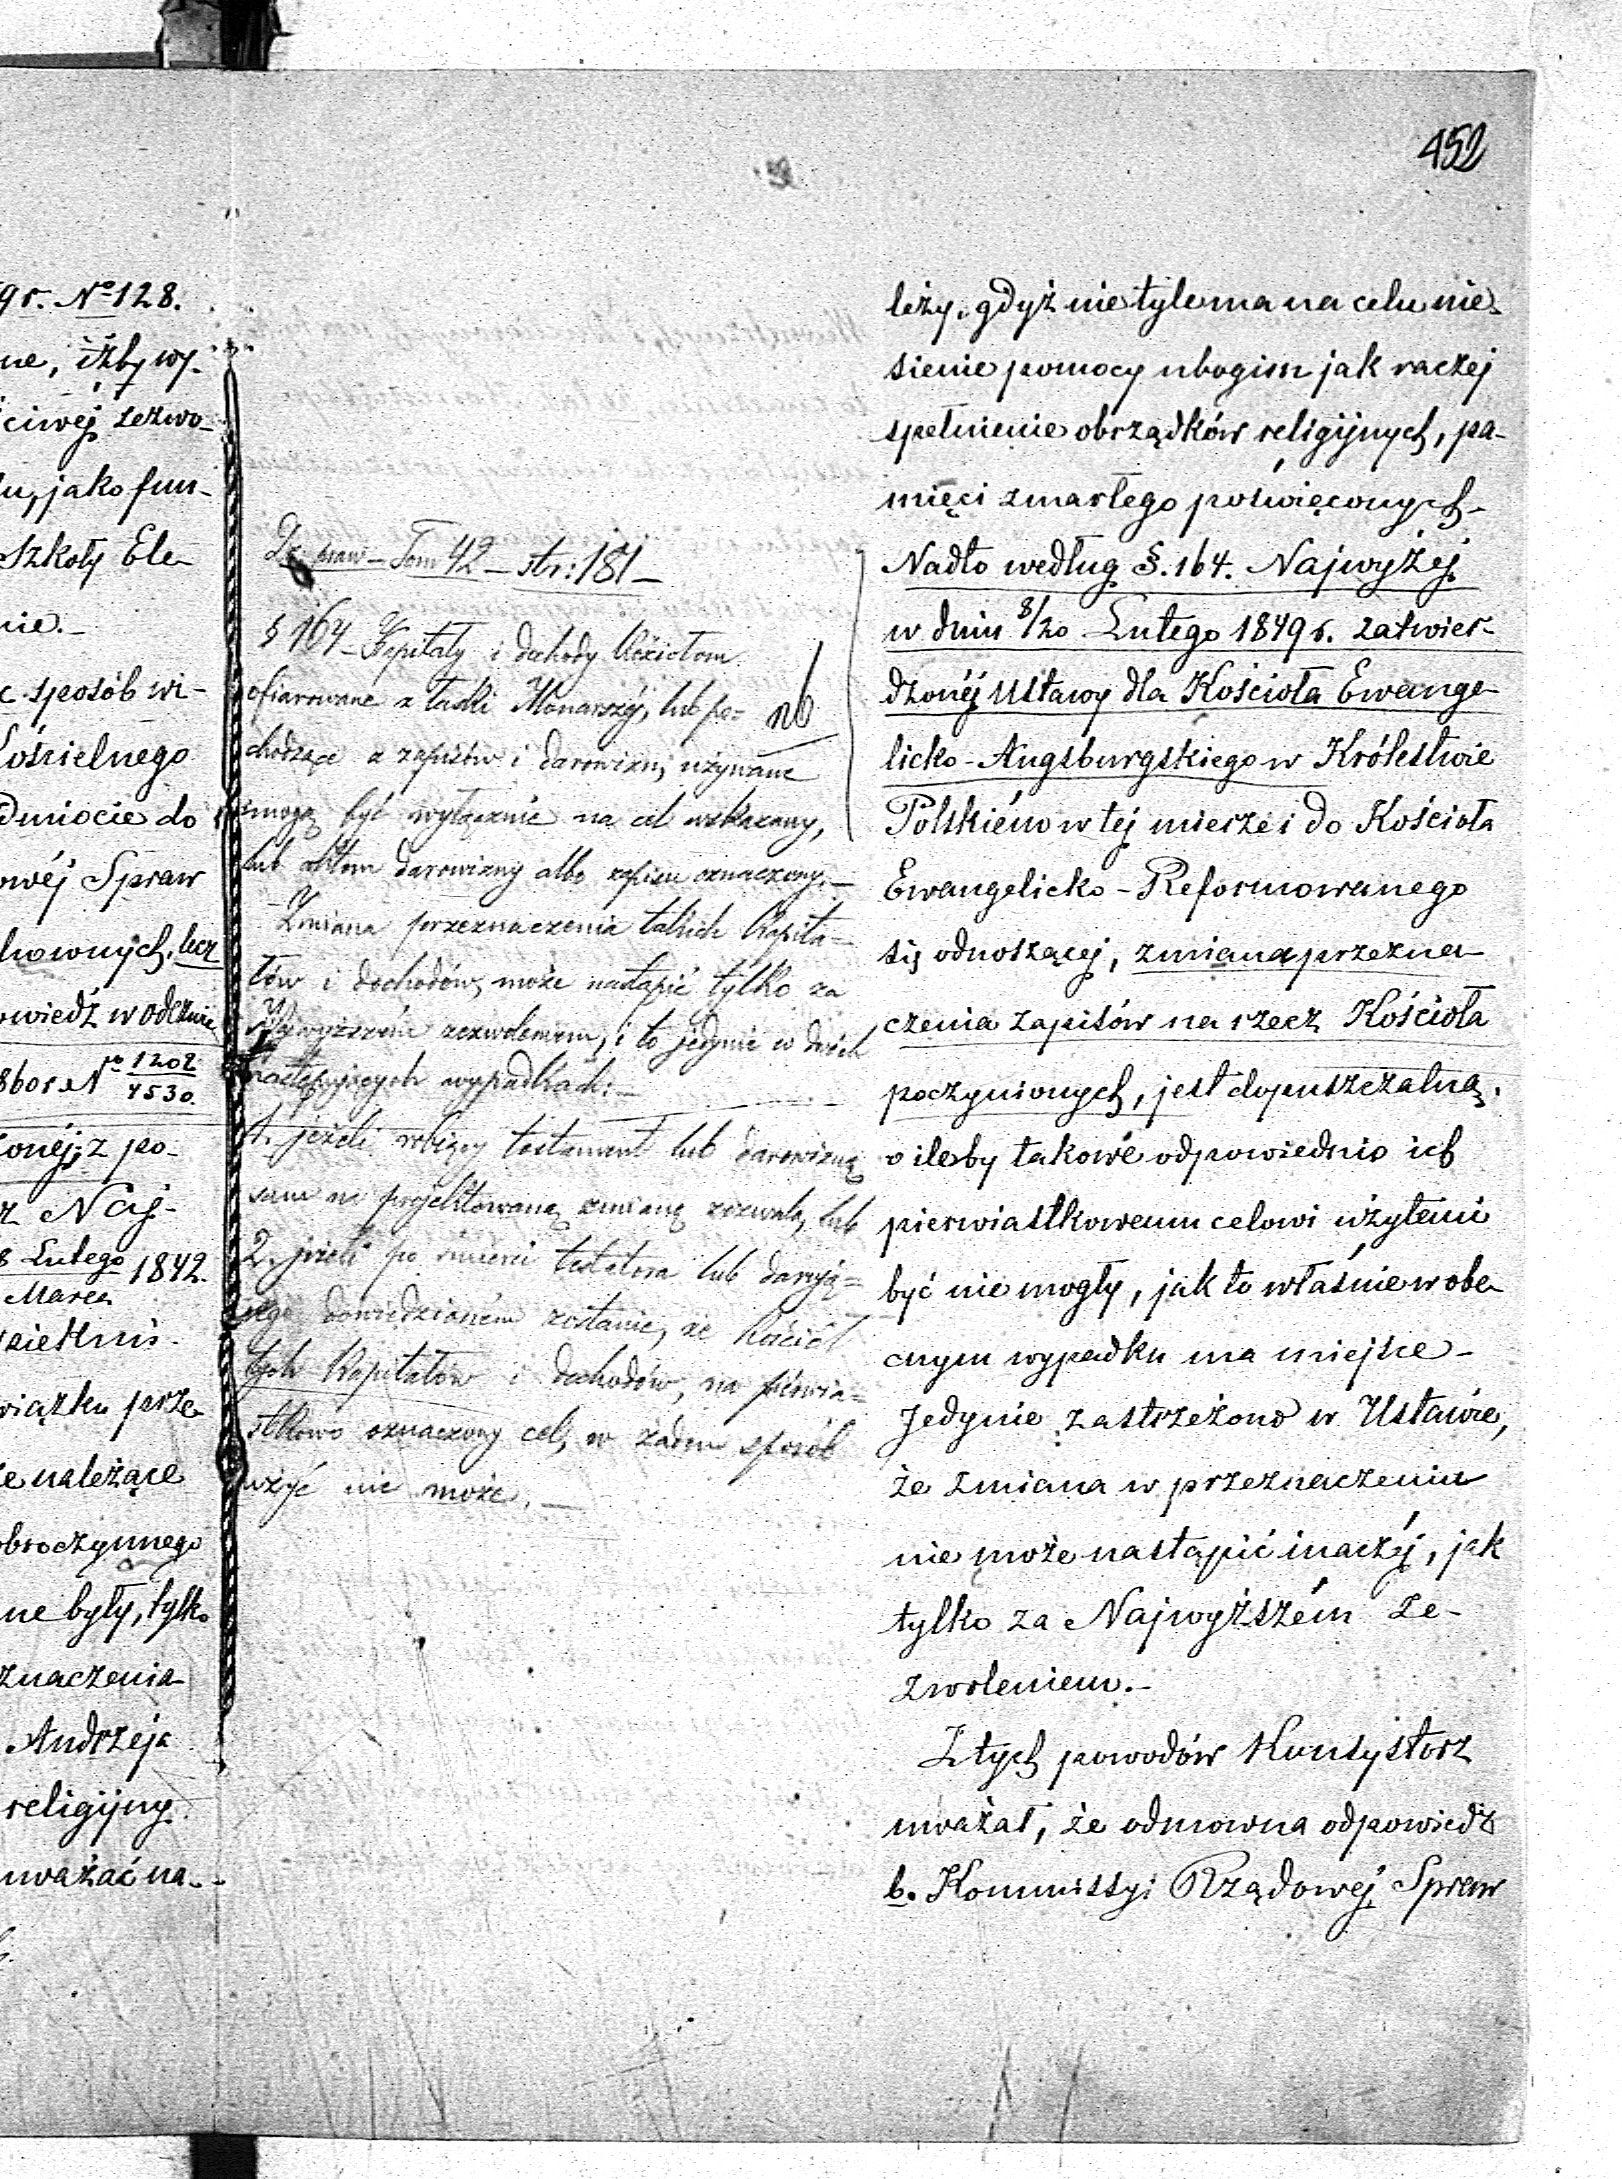 452
9r. No 128.
ne, iżby wy-
ciwéj zezwo-
lu, jako fun-
Szkoły Ele-
nie.-
c sposób wi-
Kościelnego
dmiocie do
owéj Spraw
hownych, lecz
owiedź w odezwie
860 r. No 1202/4530.
onéj, z po-
z Naj-
8 Lutego 1842.
Marca
wiązku prze-
e należące
obroczynnego
ne były, tylko
znaczenia
Andrzeja
religijny
uważać na-
Dz. praw - Tom 42 - str: 181 -
§ 164 - Kapitały i dochody Kościołom
ofiarowane z łaski Monarszéj, lub po-
chodzące z zapisów i darowizn, używane
mogą być wyłącznie na cel wskazany,
lub aktem darowizny albo zapisu oznaczony. -
Zmiana przeznaczenia takich Kapita-
łów i dochodów, może nastąpić tylko za
Najwyższém zezwoleniem, i to jedynie w dwóch
następujących wypadkach: -
1. jeżeli robiący testament lub darowiznę
sam na projektowaną zmianę zezwala, lub
2. jeżeli po śmierci testatora lub darują-
cego dowiedzioném zostanie, że Kościół
tych Kapitałów i dochodów, na pierwia-
stkowo oznaczony cel, w żaden sposób
użyć nie może. -
nb
leży, gdyż nie tyle ma na celu nie-
sienie pomocy ubogim jak raczej
spełnienie obrządków religijnych, pa-
mięci zmarłego poświęconych -
Nadto według §. 164. Najwyżéj
w dniu 8/20 Lutego 1849 r. zatwier-
dzonéj Ustawy dla Kościoła Ewange-
licko-Augsburgskiego w Królestwie
Polskiém w téj mierze i do Kościoła
Ewangelicko-Reformowanego
się odnoszącej, zmiana przezna-
czenia zapisów na rzecz Kościoła
poczynionych, jest dopuszczalną,
o ileby takowe odpowiednio ich
pierwiastkowemu celowi użytemi
być nie mogły, jak to właśnie w obe-
cnym wypadku ma miejsce -
Jedynie zastrzeżono w Ustawie,
że zmiana w przeznaczeniu
nie może nastąpić inaczéj, jak
tylko za Najwyższém ze-
zwoleniem. -
Z tych powodów Konsystorz
uważał, że odmowna odpowiedź
b. Kommissyi Rządowéj Spraw